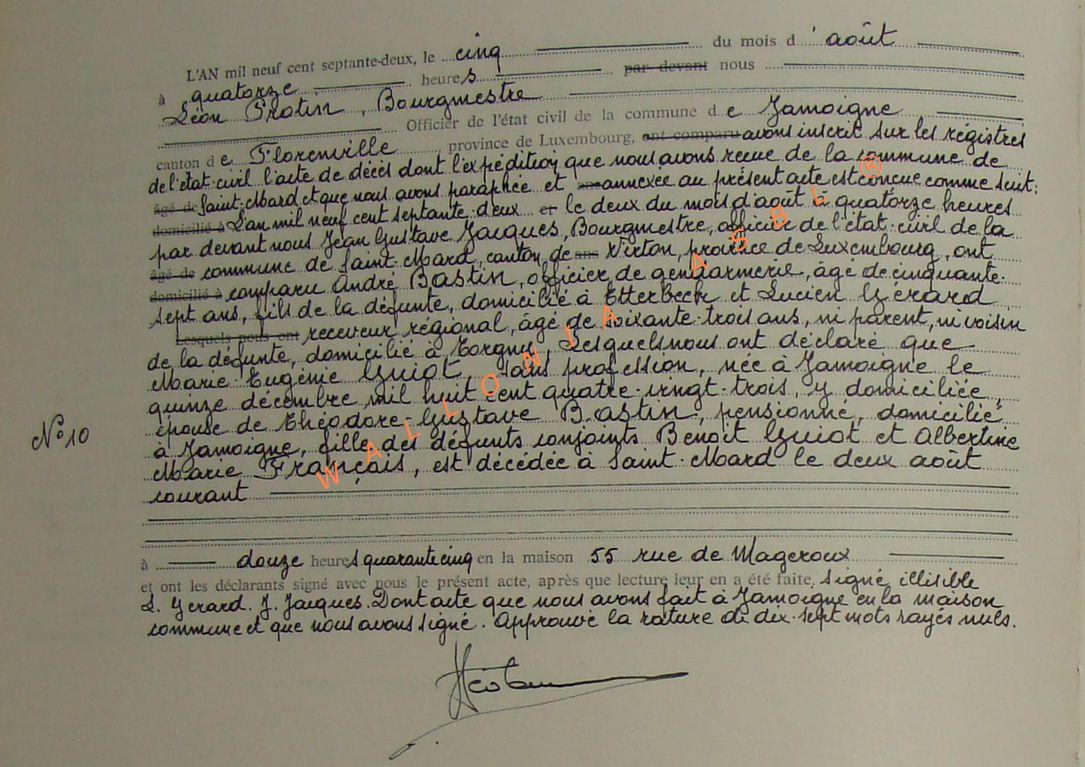 L'AN mil neuf cent septante-deux, le cinq du mois d'août
à quatorze heures par devant nous
Léon Protin, Bourgmestre
Officier de l'état civil de la commune de Jamoigne
canton de Florenville, province de Luxembourg, ont comparu avons inscrit sur les régistres
de l'état-civil l'acte de décès dont l'expédition que nous avons reçue de la commune de
âgé de Saint-Mard et que nous avons paraphée et ans annexée au présent acte est conçue comme suit:
domicilié à L'an mil neuf cent septante-deux et le deux du mois d'août à quatorze heures
par devant nous Jean Gustave Jacques, Bourgmestre, officier de l'état-civil de la
âgé de commune de Saint-Mard, canton de ans Virton, province de Luxembourg, ont
domicilié à comparu André Bastin, officier de gendarmerie, âgé de cinquante-
sept ans, fils de la défunte, domicilié à Etterbeek et Lucien Gérard
Lesquels nous ont receveur régional, âgé de soixante-trois ans, ni parent, ni voisin
de la défunte, domicilié à Torgny Lesquels nous ont déclaré que
Marie-Eugénie Guiot, sans profession, née à Jamoigne le
quinze décembre mil huit cent quatre-vingt-trois, y domiciliée,
épouse de Théodore-Gustave Bastin, pensionné, domicilié
N° 10
à Jamoigne, fille des défunts conjoints Benoît Guiot et Albertine
Marie Français, est décédée à Saint-Mard le deux août
courant
à douze heures quarante cinq en la maison 55 rue de Mageroux
et ont les déclarants signé avec nous le présent acte, après que lecture leur en a été faite, signé illisible
L. Gerard. J. Jacques. Dont acte que nous avons fait à Jamoigne en la maison
commune et que nous avons signé. Approuvé la rature de dix-sept mots rayés nuls.
WALLONIA ASBL ®